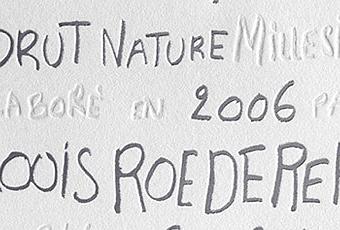 BRUT NATURE MILLESI
LABORÉ EN 2006 PA
LOUIS ROEDERER